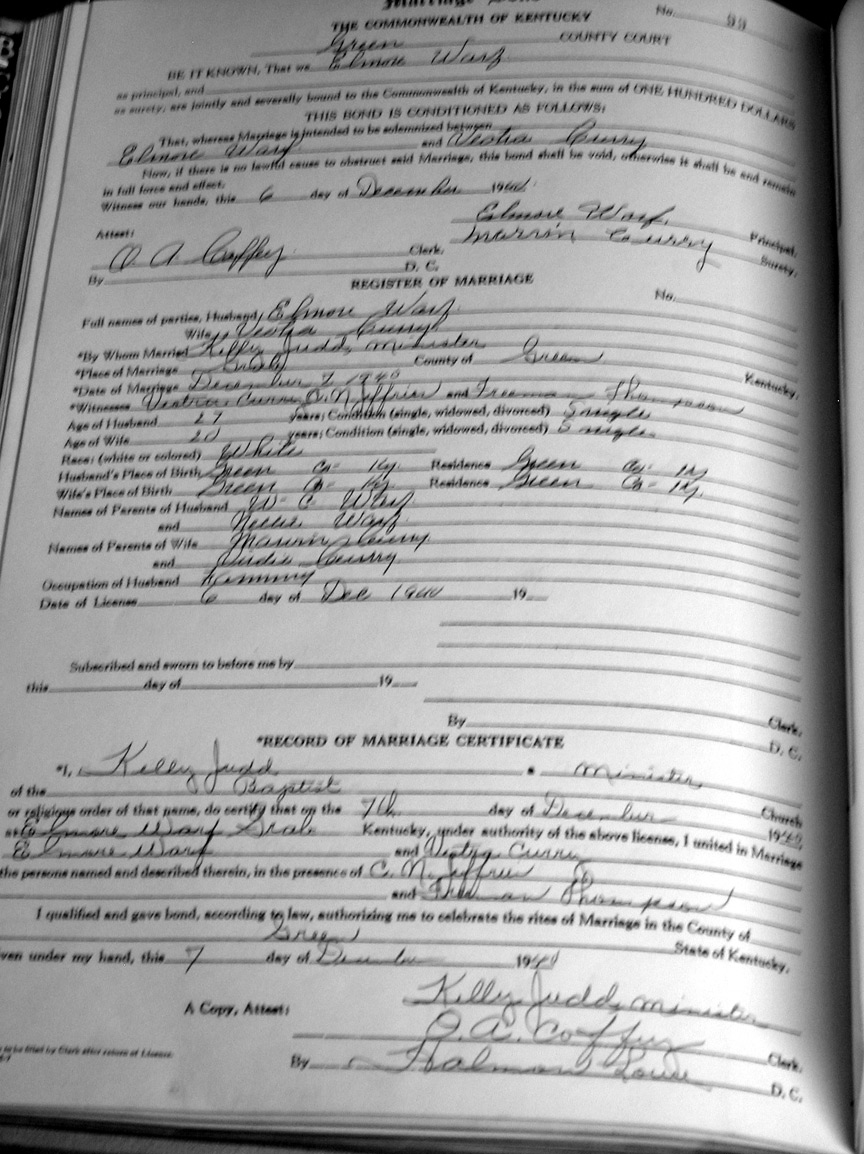 Marriage Bond
No. 99
THE COMMONWEALTH OF KENTUCKY
Green COUNTY COURT
BE IT KNOWN, That we Elmore Warf
as principal, and
as surety, are jointly and severally bound to the Commonwealth of Kentucky, in the sum of ONE HUNDRED DOLLARS
THIS BOND IS CONDITIONED AS FOLLOWS:
That, whereas Marriage is intended to be solemnized between
Elmore Warf and Vestra Curry
Now, if there is no lawful cause to obstruct said Marriage, this bond shall be void, otherwise it shall be and remain
in full force and effect.
Witness our hands, this 6 day of December 1940
Elmore Warf Principal.
Attest: Marvin Curry Surety.
O. A. Coffey Clerk.
By D. C.
REGISTER OF MARRIAGE
No.
Full names of parties, Husband, Elmore Warf
Wife, Curry
*By Whom Married Kelly Judd, minister
*Place of Marriage Grab County of Green Kentucky.
*Date of Marriage December 7 1940
*Witnesses Curry C. N. Jeffries and Freeman Thompson
Age of Husband 27 years; Condition (single, widowed, divorced) Single
Age of Wife 20 years; Condition (single, widowed, divorced) Single
Race: (white or colored) White
Husband's Place of Birth Green Co- Ky. Residence Green Co- Ky
Wife's Place of Birth Green Co- Ky. Residence Green Co- Ky
Names of Parents of Husband W- C Warf
and Nellie Warf
Names of Parents of Wife Marvin Curry
and Curry
Occupation of Husband Farming
Date of License 6 day of Dec 1940 19
Subscribed and sworn to before me by
this day of 19
By Clerk,
D. C.
*RECORD OF MARRIAGE CERTIFICATE
*I, Kelly Judd, a minister
of the Baptist Church
or religious order of that name, do certify that on the 7th day of December 1940
at Elmore Warf Grab Kentucky, under authority of the above license, I united in Marriage
Elmore Warf and Vestra Curry
the persons named and described therein, in the presence of C. N. Jeffries
and Freeman Thompson
I qualified and gave bond, according to law, authorizing me to celebrate the rites of Marriage in the County of
Green State of Kentucky.
ven under my hand, this 7 day of December 1940
Kelly Judd, minister
A Copy, Attest: O. A. Coffey Clerk.
By Halmon D. C.
to be filled by Clerk after return of License.